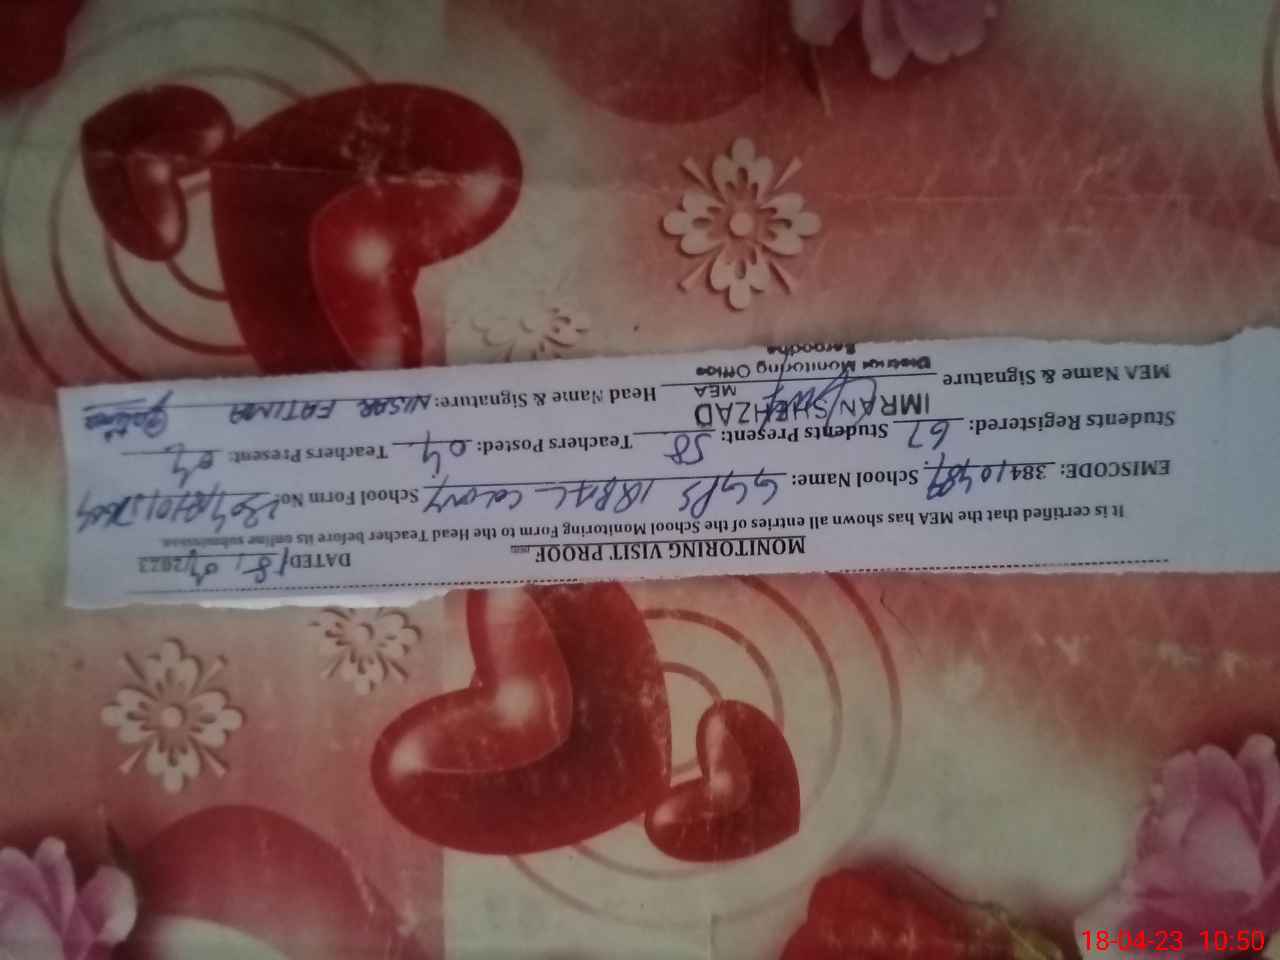 MONITORING VISIT PROOF DATED 18/04/2023
It is certified that the MEA has shown all entries of the School Monitoring Form to the Head Teacher before its online submission.
EMISCODE: 38410489 School Name: GGPS IQBAL COLONY School Form No:
Students Registered: 67 Students Present: 58 Teachers Posted: 04 Teachers Present: 04
IMRAN SHEHZAD
MEA Name & Signature Head Name & Signature: NISAR FATIMA
MEA
District Monitoring Office
Sargodha
18-04-23 10:50